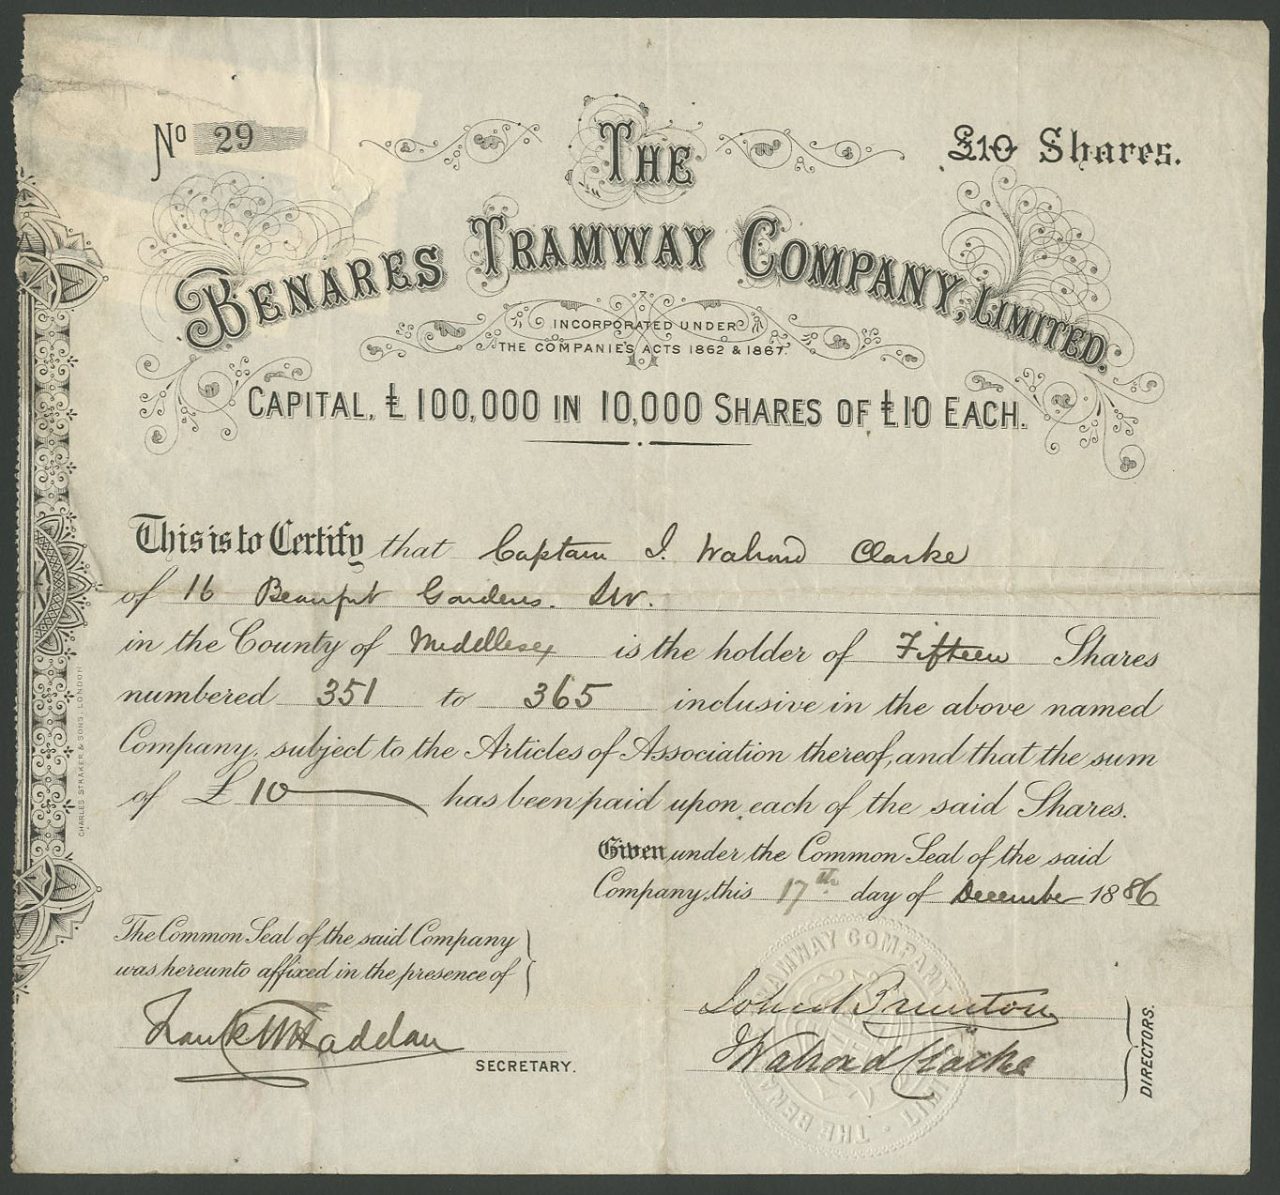 No 29
£10 Shares.
THE
BENARES TRAMWAY COMPANY, LIMITED.
INCORPORATED UNDER
THE COMPANIES ACTS 1862 & 1867.
CAPITAL, £100,000 IN 10,000 SHARES OF £10 EACH.
This is to Certify that Captain J. Walrond Clarke
of 16 Beaufort Gardens. SW.
in the County of Middlesex is the holder of Fifteen Shares
numbered 351 to 365 inclusive in the above named
Company, subject to the Articles of Association thereof, and that the sum
of £10 has been paid upon each of the said Shares.
Given under the Common Seal of the said
Company, this 17th day of December 1886
The Common Seal of the said Company
was hereunto affixed in the presence of
Frank W Haddan
SECRETARY.
John Brunton
J Walrond Clarke
DIRECTORS.
CHARLES STRAKER & SONS, LONDON